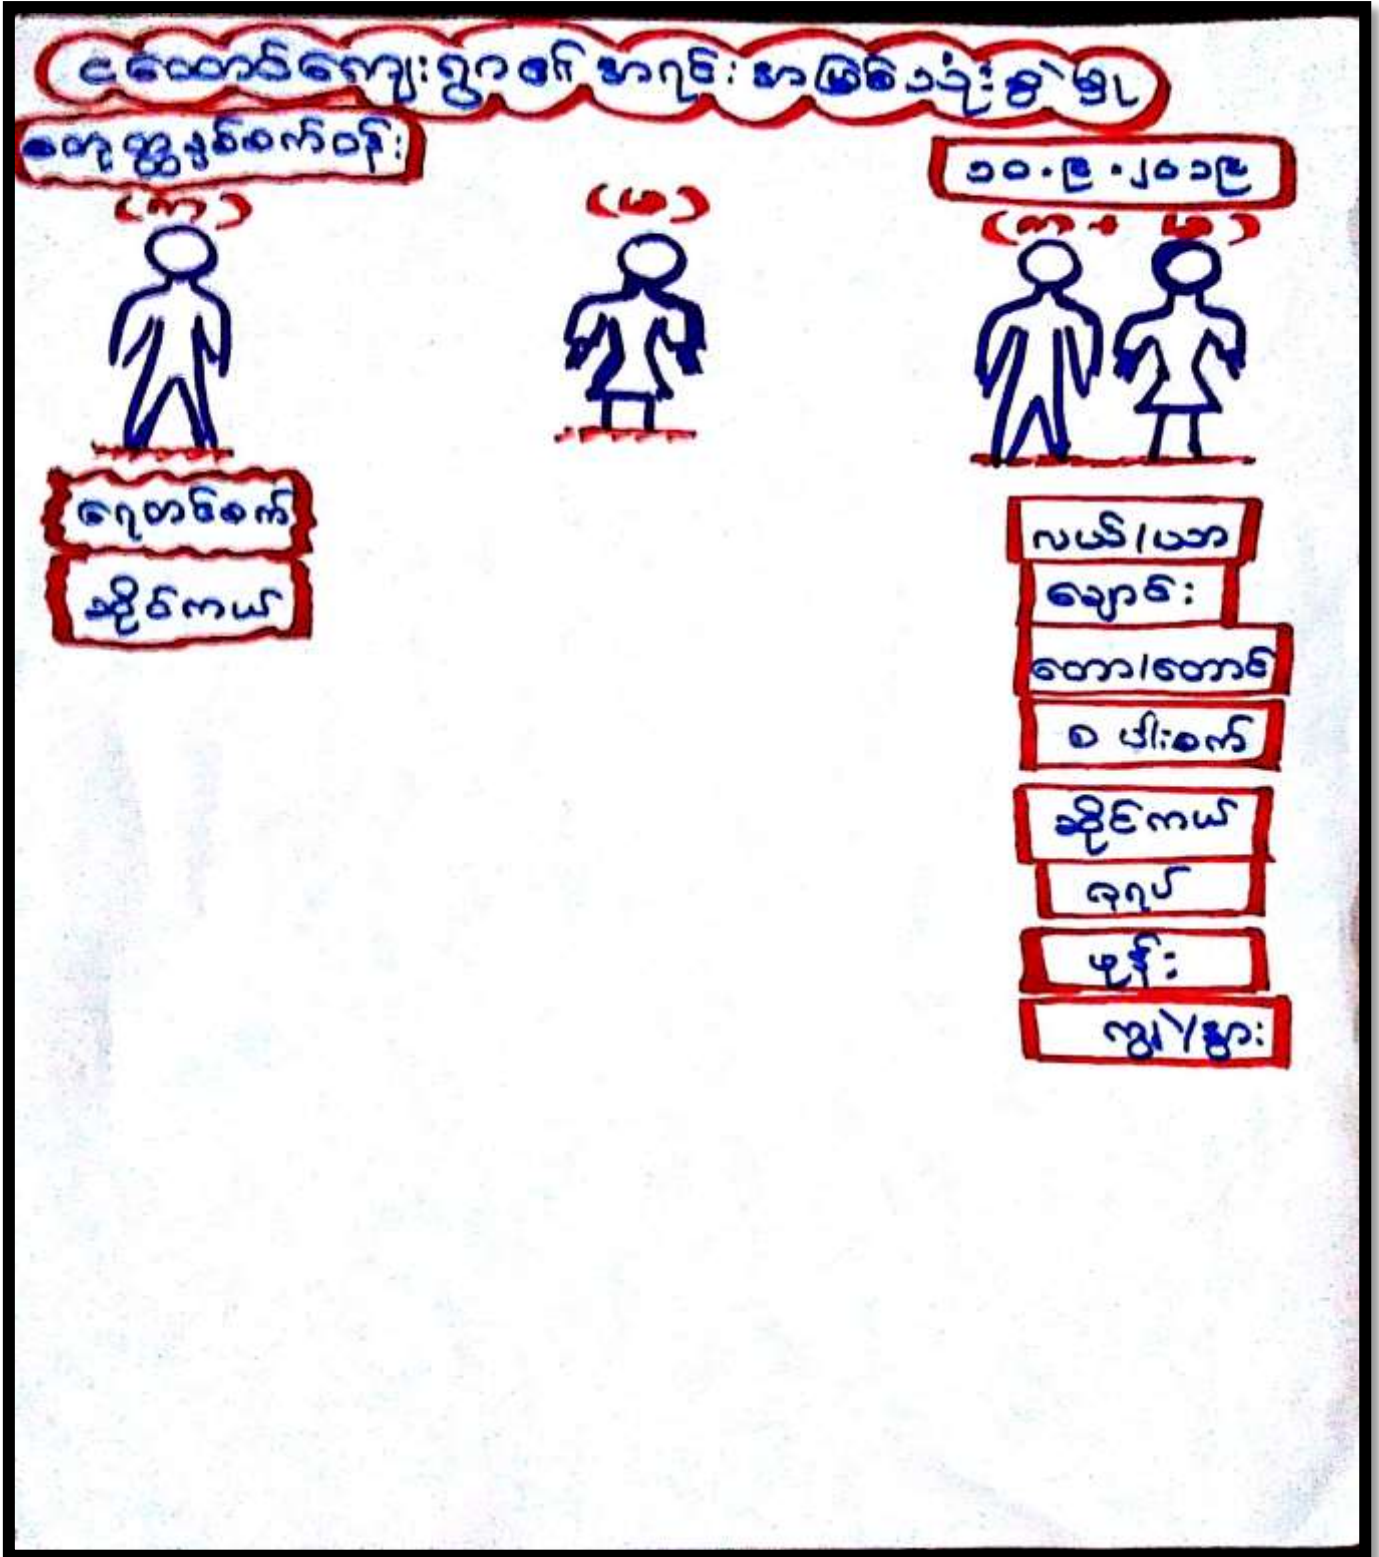 ငထောင်ကျေးရွာ၏ အရင်းအမြစ်သုံးစွဲမှု
စတုတ္ထနှစ်စက်ဝန်း
၁၀.၉.၂၀၁၉
(ကျာ)
(မ)
(ကျာ + မ)
ရေတင်စက်
ဆိုင်ကယ်
လယ်/ယာ
ချောင်း
တော/တောင်
စပါးစက်
ဆိုင်ကယ်
ခုရပ်
ဖုန်း
ကျွဲ/နွား